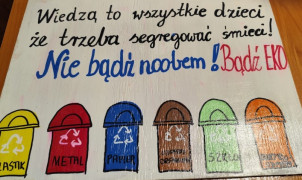 Wiedzą to wszystkie dzieci
że trzeba segregować śmieci!
Nie bądź noobem! Bądź EKO
PLASTIK METAL PAPIER SZKŁO